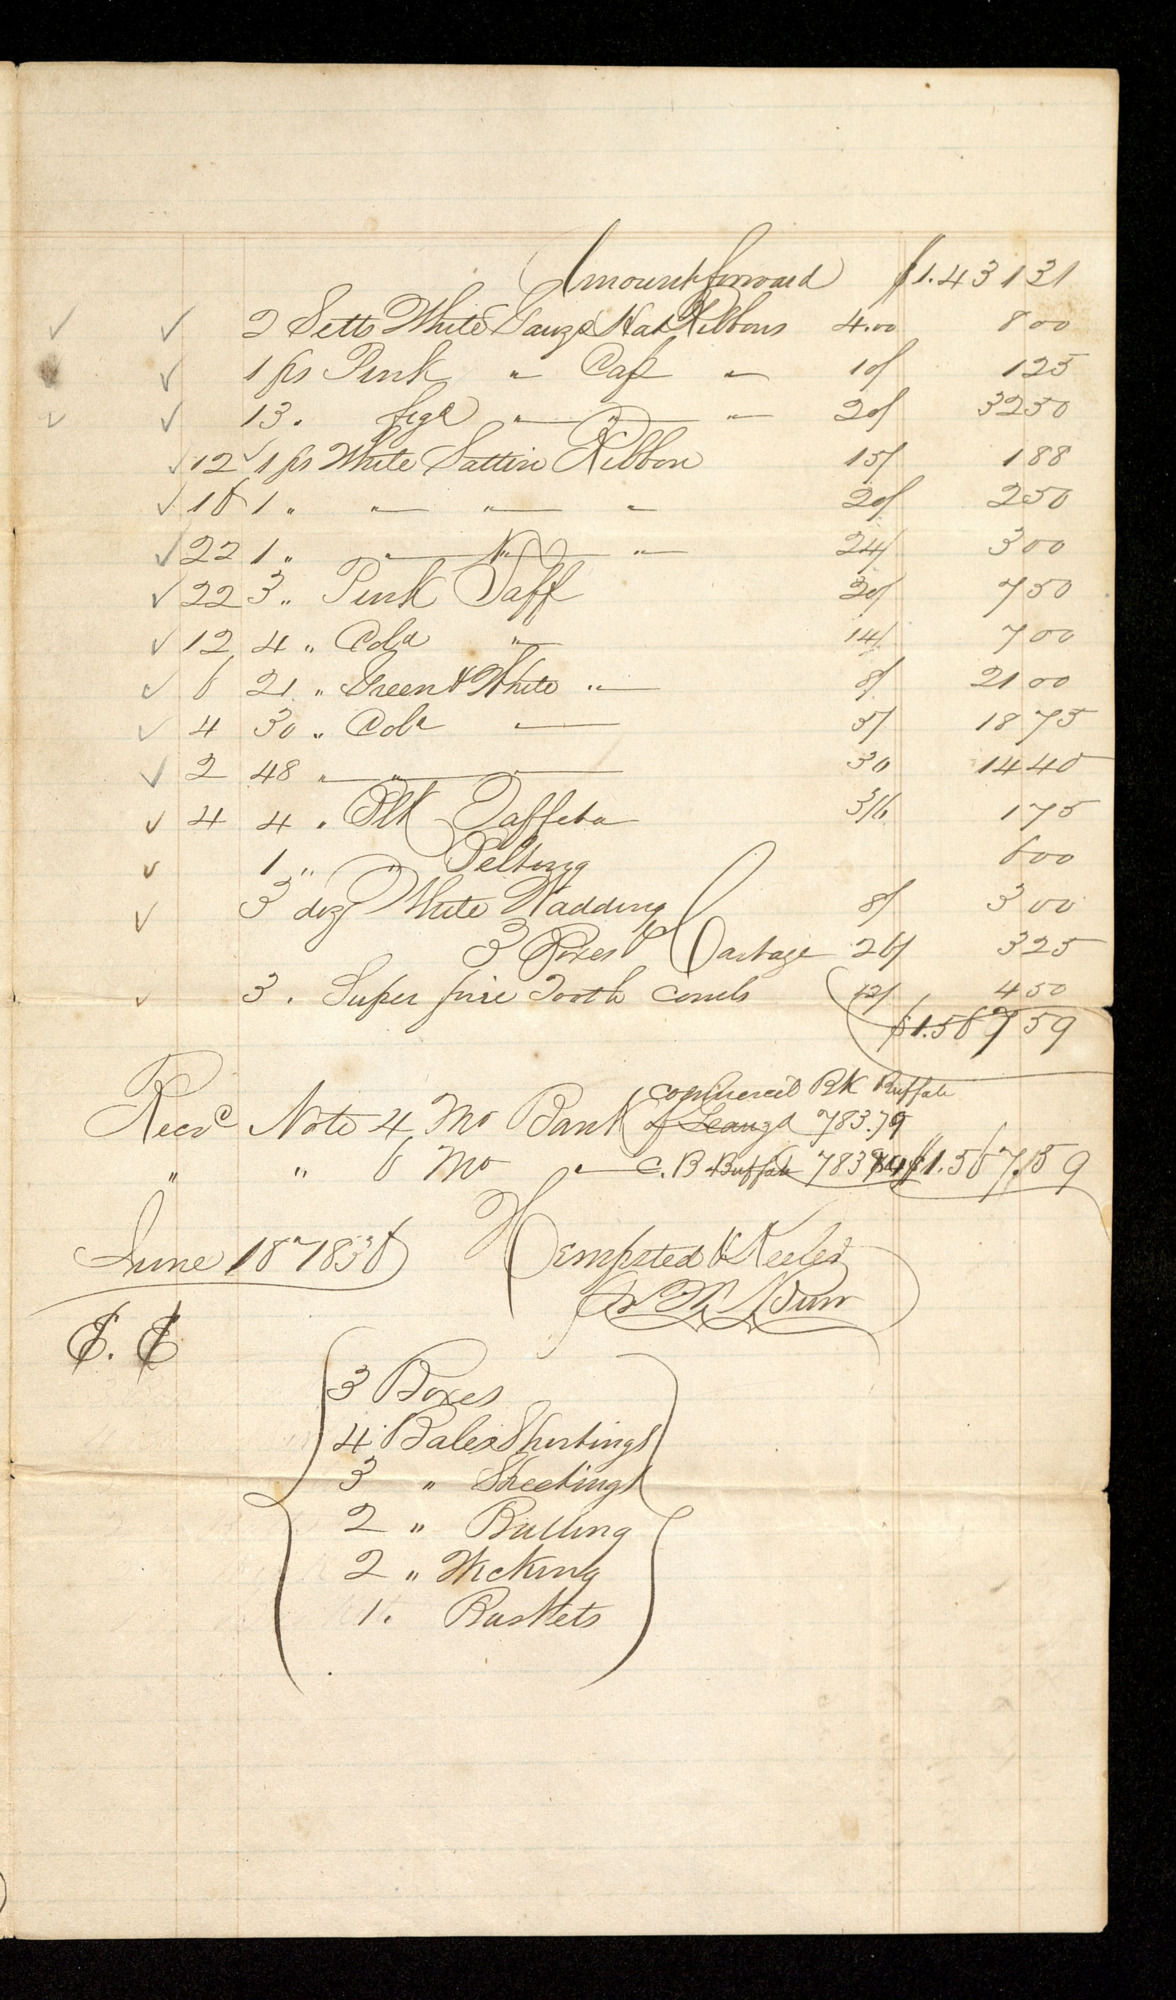 Amount forward $1.431 31
✓ ✓ 2 Setts White Gauze Hat Ribbons 4.00 8 00
✓ 1 ps Pink " Cap " 10/ 1 25
✓ ✓ 13 . figd " " " 20/ 32 50
✓ 12 ✓ 1 ps White Sattin Ribbon 15/ 1 88
✓ 16 1 " " " " 20/ 2 50
✓ 22 1 " " " " 24/ 3 00
✓ 22 3 " Pink Taff 20/ 7 50
✓ 12 4 " Cold " 14/ 7 00
✓ 6 21 " Green & White " 8/ 21 00
✓ 4 30 " Cold " 5/ 18 75
✓ 2 48 " " " 30 14 40
✓ 4 4 " Blk Taffeta 3/6 1 75
✓ 1 " " Belting 6 00
✓ 3 doz White Wadding 8/ 3 00
3 Boxes & Cartage 26/ 3 25
✓ 3 . Super fine Tooth combs 12/ 4 50
$1.567 59
commercial BK Buffalo
Recd Note 4 Mo Bank of 783.79
" " 6 Mo " C. B Buffalo 783 $1.567.59
June 16" 1836 Hempsted & Keeler
E. E
3 Boxes
4 Bales Shirtings
3 " Sheetings
2 " Batting
2 " Wicking
1 . Baskets